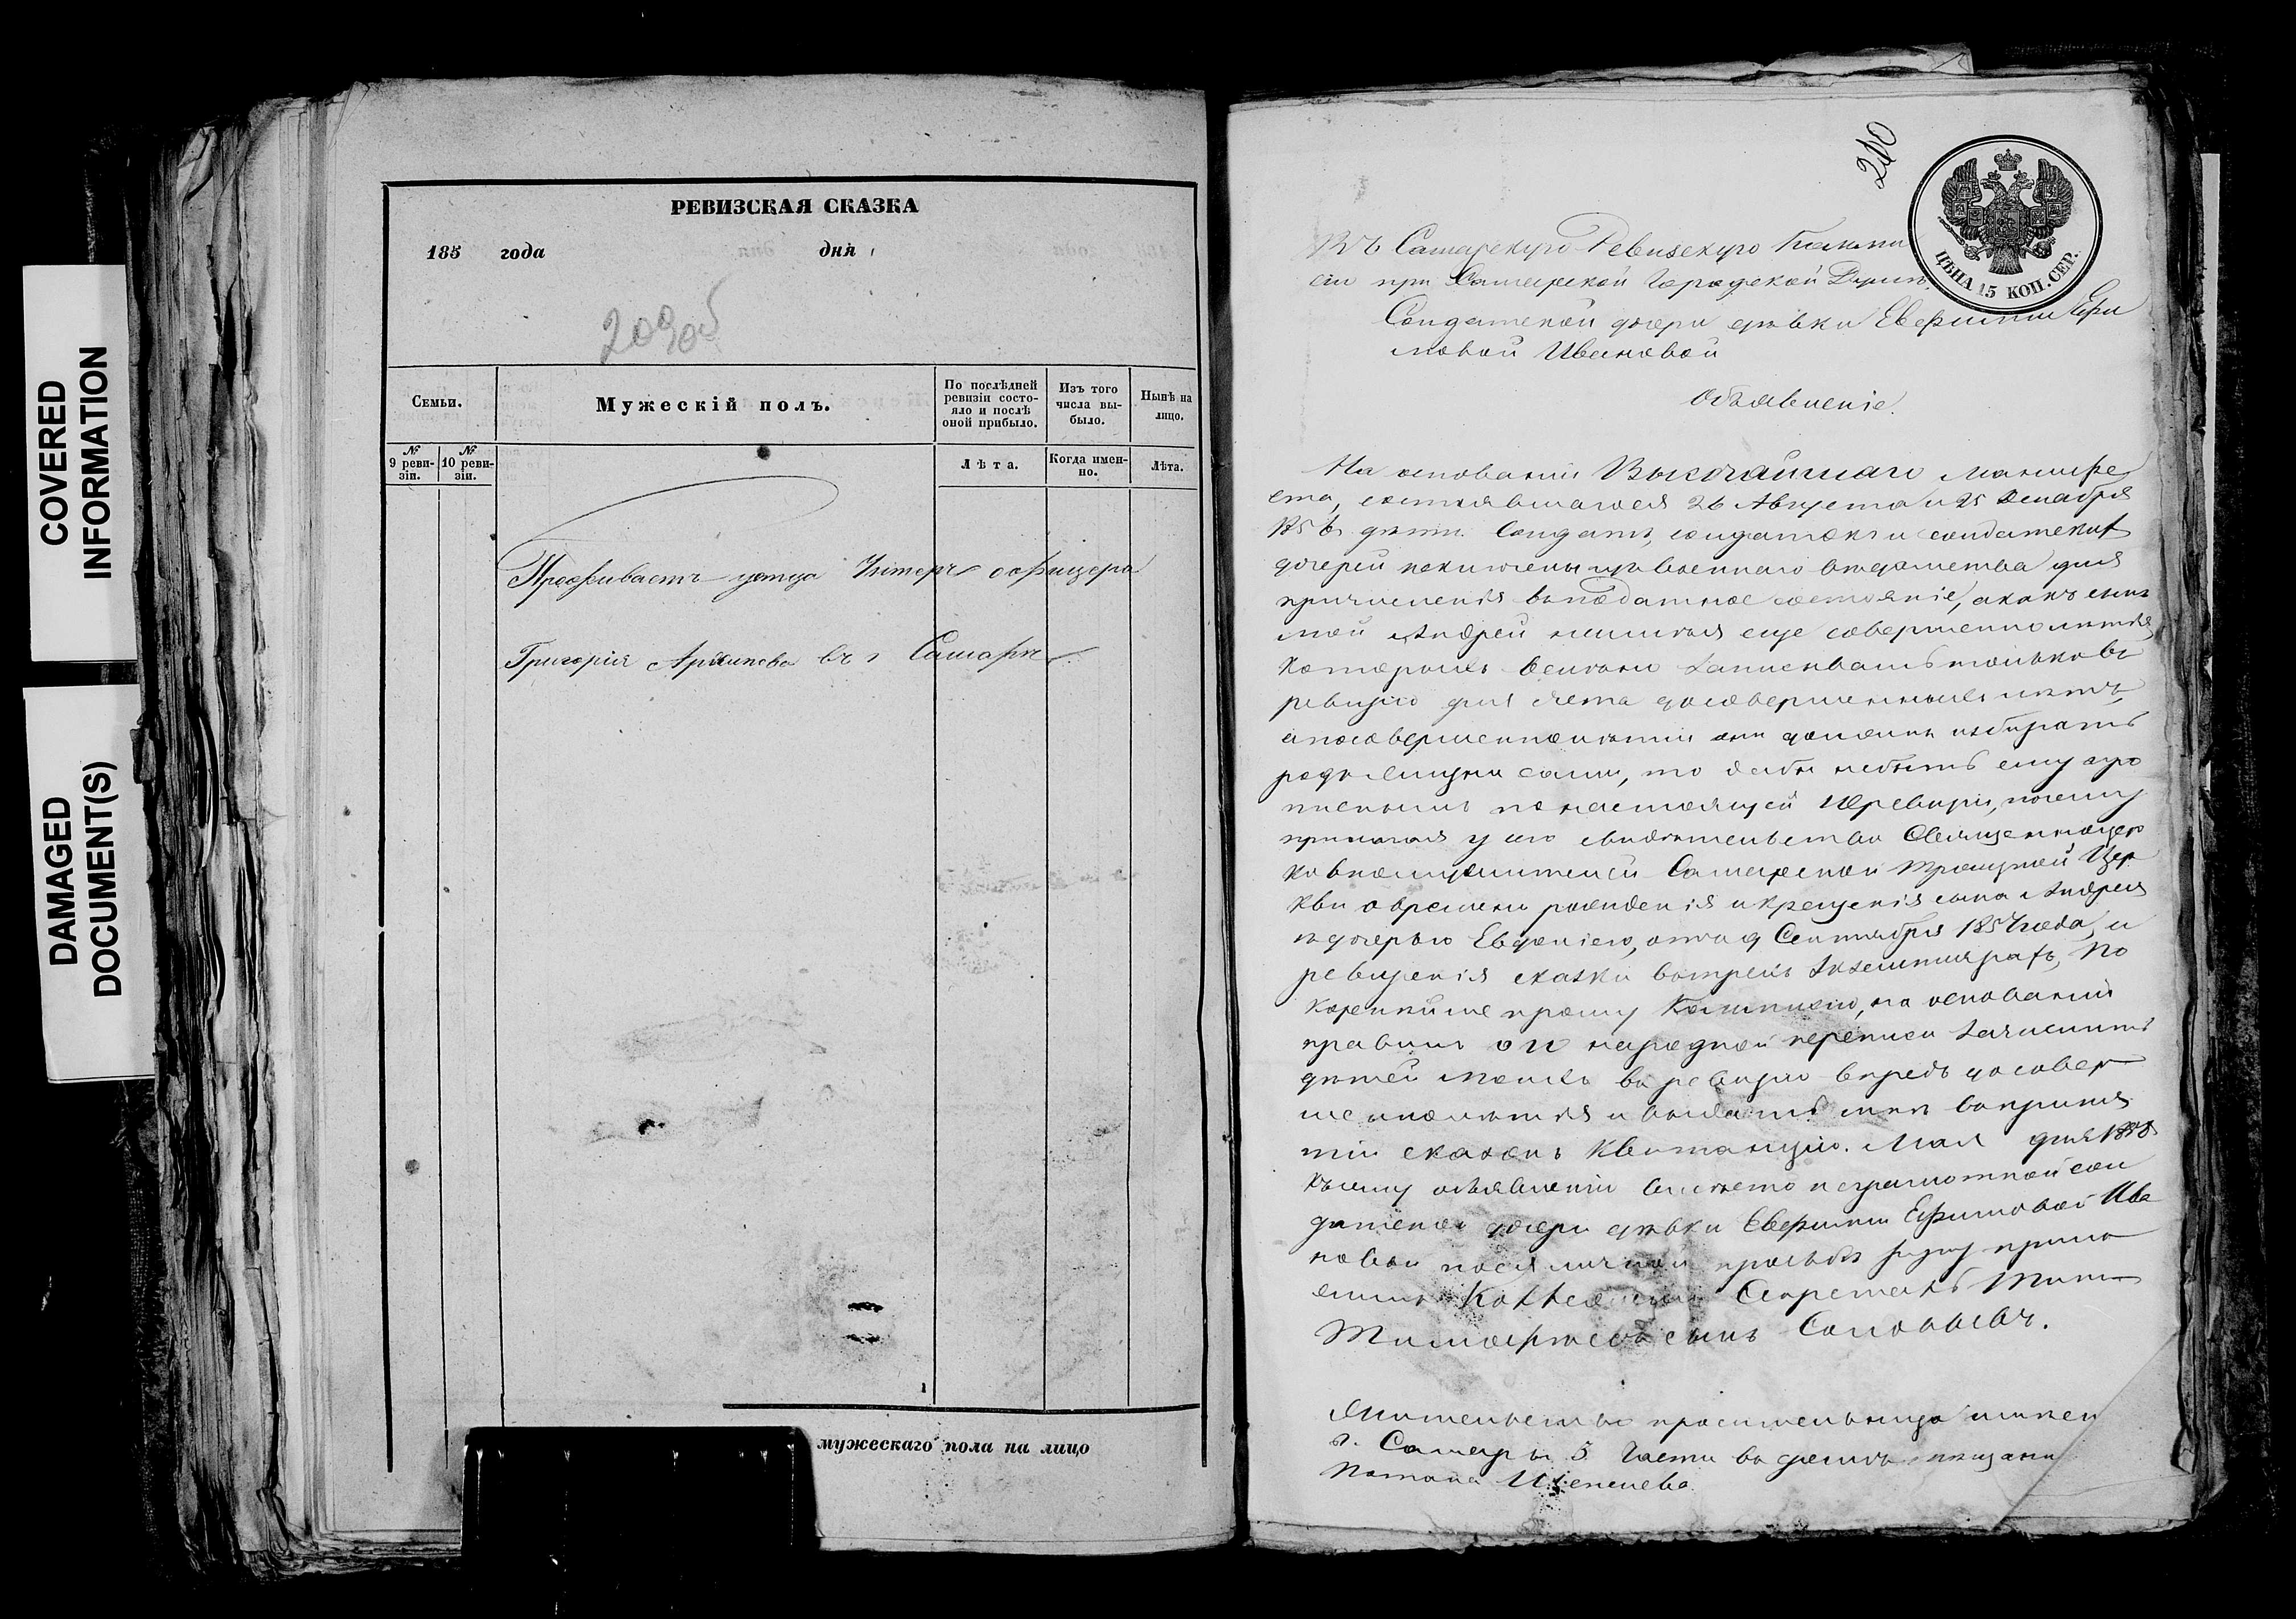 COVERED
INFORMATION
DAMAGED
DOCUMENT(S)
РЕВИЗСКАЯ СКАЗКА
185 года дня
209об
Семьи.
Мужескій полъ.
По послѣдней ревизіи состояло и послѣ оной прибыло.
Изъ того числа выбыло.
Нынѣ на лицо.
№ 9 ревизіи.
№ 10 ревизіи.
Лѣта.
Когда именно.
Лѣта.
Проживаетъ уотца Унтеръ офицера
Григорія Архипова въ г Самарѣ
мужескаго пола на лицо
210
ЦѢНА 15 КОП. СЕР.
Въ Самарскую Ревизскую Комми
сію при Самарской Городской Думѣ
Солдатской дочери дѣвки Евфиміи Ефи
мовой Ивановой
Объявленіе.
На основаніи Высочайшаго Манифе
ста, состоявшагося 26 Августа и 25 Декабря
1856 дѣти Солдатъ, солдатокъ и солдатскихъ
дочерей исключены изъ военнаго вѣдомства для
причисленія въ податное состояніе, а какъ сынъ
мой Андрей неимѣя еще совершеннолѣтія,
которыхъ велено записывать только въ
ревизію для счета до совершенныхъ лѣтъ,
а по совершеннолѣтіи они должны избирать
родъ жизни сами, то дабы небыть ему про
писнымъ по настоящей 10й ревизіи, почему
прилагая у сего свидѣтельство Священноцер
ковнослужителей Самарской Троицкой Цер
кви о времени рожденія и крещенія сына Андрея
и дочерью Евдокіею, отъ 9 Сентября 1857 года, и
ревизскія сказки въ трехъ экземплярахъ, По
корнѣйше прошу Коммисію, на основаніи
правилъ о народной переписи зачислить
дѣтей моихъ въ ревизію впредь до совер
шеннолѣтія и выдать мнѣ въ приня
тіи сказокъ квитанцію. Мая дня 1858
Къ сему объявленію вмѣсто неграмотной сол
датской дочери дѣвки Евфиміи Ефимовой Ива
новой по ея личной прозьбѣ руку прило
жилъ Секретарь
сынъ Соловьевъ.
Жительство просительница имѣетъ
г. Самары 3 части въ домѣ мѣщанина